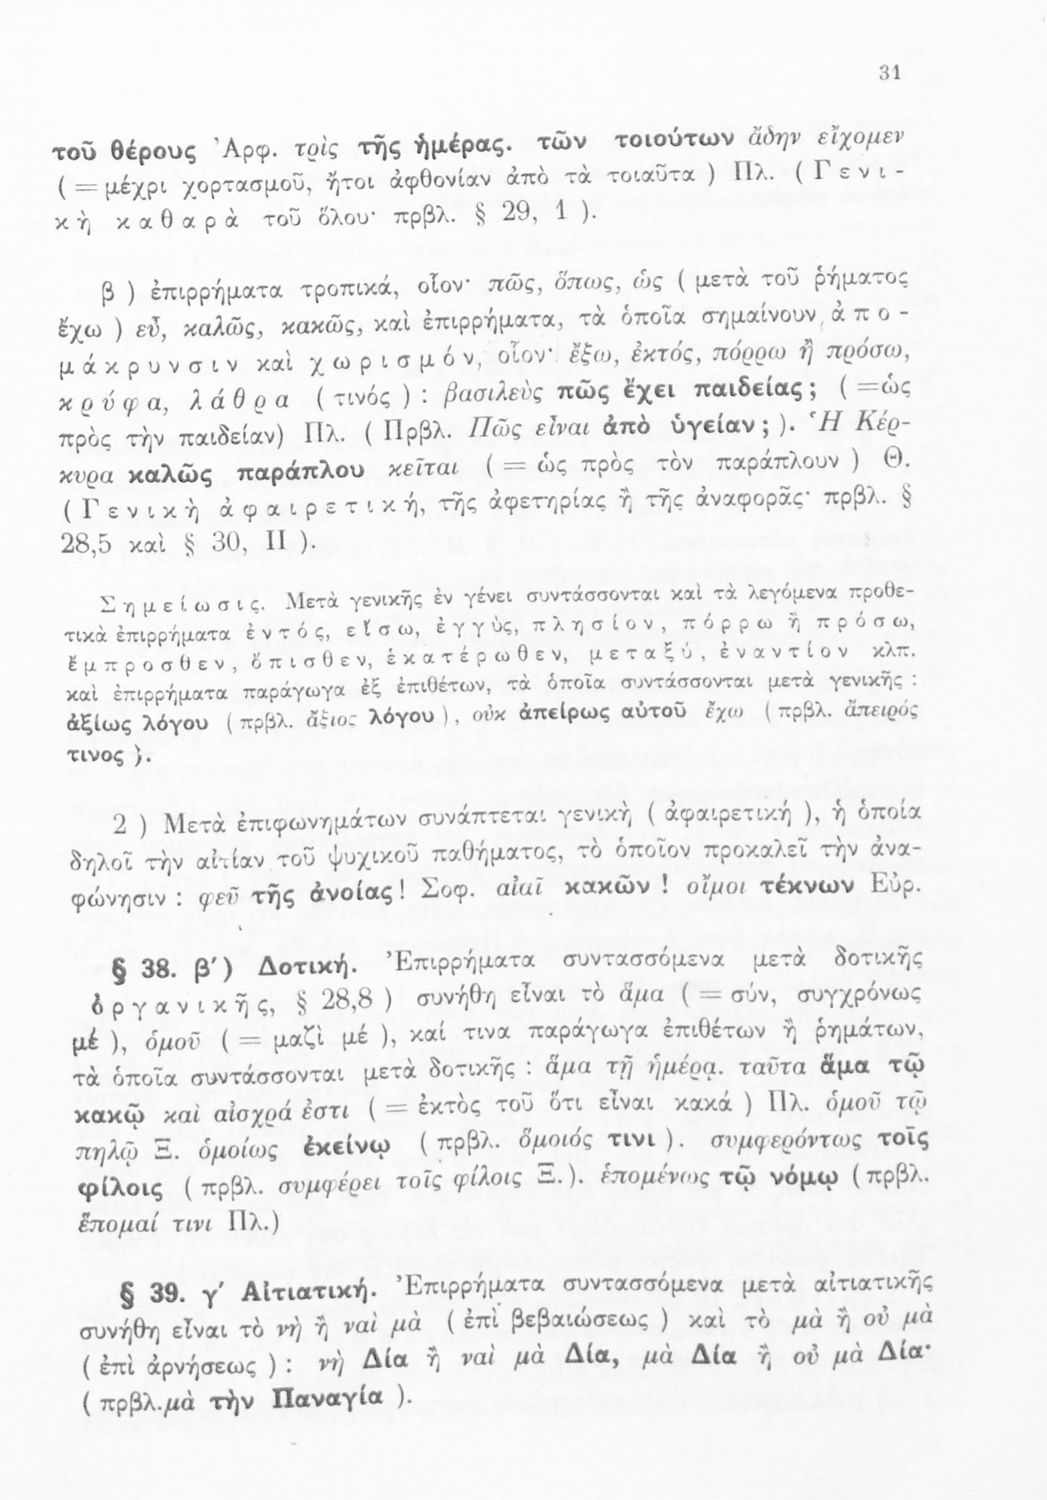 31
τοῦ θέρους Ἀρφ. τρὶς τῆς ἡμέρας. τῶν τοιούτων ἄδην εἴχομεν
( = μέχρι χορτασμοῦ, ἤτοι ἀφθονίαν ἀπὸ τὰ τοιαῦτα ) Πλ. ( Γενι-
κὴ καθαρὰ τοῦ ὅλου· πρβλ. § 29, 1 ).
β ) ἐπιρρήματα τροπικά, οἷον· πῶς, ὅπως, ὡς ( μετὰ τοῦ ῥήματος
ἔχω ) εὖ, καλῶς, κακῶς, καὶ ἐπιρρήματα, τὰ ὁποῖα σημαίνουν ἀπο-
μάκρυνσιν καὶ χωρισμόν, οἷον· ἔξω, ἐκτός, πόρρω ἢ πρόσω,
κρύφα, λάθρα ( τινός ) : βασιλεὺς πῶς ἔχει παιδείας ; ( =ὡς
πρὸς τὴν παιδείαν) Πλ. ( Πρβλ. Πῶς εἶναι ἀπὸ ὑγείαν ; ). Ἡ Κέρ-
κυρα καλῶς παράπλου κεῖται ( = ὡς πρὸς τὸν παράπλουν ) Θ.
( Γενικὴ ἀφαιρετική, τῆς ἀφετηρίας ἢ τῆς ἀναφορᾶς· πρβλ. §
28,5 καὶ § 30, II ).
Σημείωσις. Μετὰ γενικῆς ἐν γένει συντάσσονται καὶ τὰ λεγόμενα προθε-
τικὰ ἐπιρρήματα ἐντός, εἴσω, ἐγγύς, πλησίον, πόρρω ἢ πρόσω,
ἔμπροσθεν, ὄπισθεν, ἑκατέρωθεν, μεταξύ, ἐναντίον κλπ.
καὶ ἐπιρρήματα παράγωγα ἐξ ἐπιθέτων, τὰ ὁποῖα συντάσσονται μετὰ γενικῆς :
ἀξίως λόγου ( πρβλ. ἄξιος λόγου ), οὐκ ἀπείρως αὐτοῦ ἔχω ( πρβλ. ἄπειρός
τινος ).
2 ) Μετὰ ἐπιφωνημάτων συνάπτεται γενικὴ ( ἀφαιρετική ), ἡ ὁποία
δηλοῖ τὴν αἰτίαν τοῦ ψυχικοῦ παθήματος, τὸ ὁποῖον προκαλεῖ τὴν ἀνα-
φώνησιν : φεῦ τῆς ἀνοίας ! Σοφ. αἰαῖ κακῶν ! οἴμοι τέκνων Εὐρ.
§ 38. β΄) Δοτική. Ἐπιρρήματα συντασσόμενα μετὰ δοτικῆς
ὀργανικῆς, § 28,8 ) συνήθη εἶναι τὸ ἅμα ( = σύν, συγχρόνως
μέ ), ὁμοῦ ( = μαζὶ μέ ), καί τινα παράγωγα ἐπιθέτων ἢ ῥημάτων,
τὰ ὁποῖα συντάσσονται μετὰ δοτικῆς : ἅμα τῇ ἡμέρᾳ. ταῦτα ἅμα τῷ
κακῷ καὶ αἰσχρά ἐστι ( = ἐκτὸς τοῦ ὅτι εἶναι κακά ) Πλ. ὁμοῦ τῷ
πηλῷ Ξ. ὁμοίως ἐκείνῳ ( πρβλ. ὅμοιός τινι ). συμφερόντως τοῖς
φίλοις ( πρβλ. συμφέρει τοῖς φίλοις Ξ.). ἑπομένως τῷ νόμῳ ( πρβλ.
ἕπομαί τινι Πλ.)
§ 39. γ΄ Αἰτιατική. Ἐπιρρήματα συντασσόμενα μετὰ αἰτιατικῆς
συνήθη εἶναι τὸ νὴ ἢ ναὶ μὰ ( ἐπὶ βεβαιώσεως ) καὶ τὸ μὰ ἢ οὐ μὰ
( ἐπὶ ἀρνήσεως ) : νὴ Δία ἢ ναὶ μὰ Δία, μὰ Δία ἢ οὐ μὰ Δία·
( πρβλ. μὰ τὴν Παναγία ).